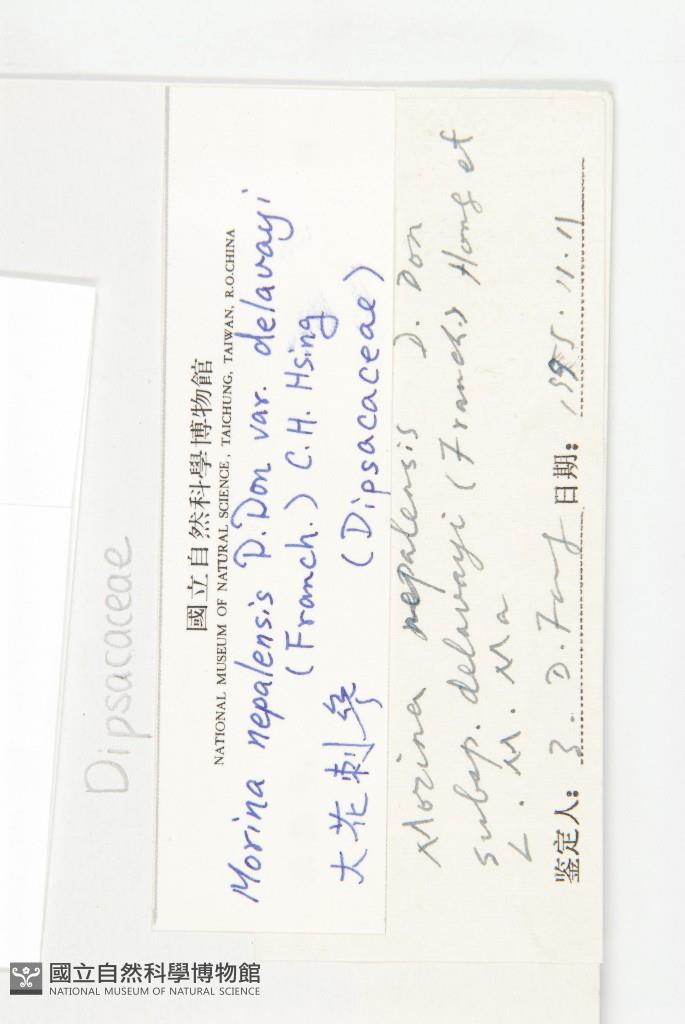 Dipsacaceae
國立自然科學博物館
NATIONAL MUSEUM OF NATURAL SCIENCE, TAICHUNG, TAIWAN, R.O.CHINA
Morina nepalensis D.Don var. delavayi
(Franch.) C.H. Hsing
大花刺参 (Dipsacaceae)
Morina nepalensis D. Don
subsp. delavayi (Franch.) Hong et
L. M. Ma
鉴定人: D. Fang 日期: 1995.11.11
國立自然科學博物館
NATIONAL MUSEUM OF NATURAL SCIENCE